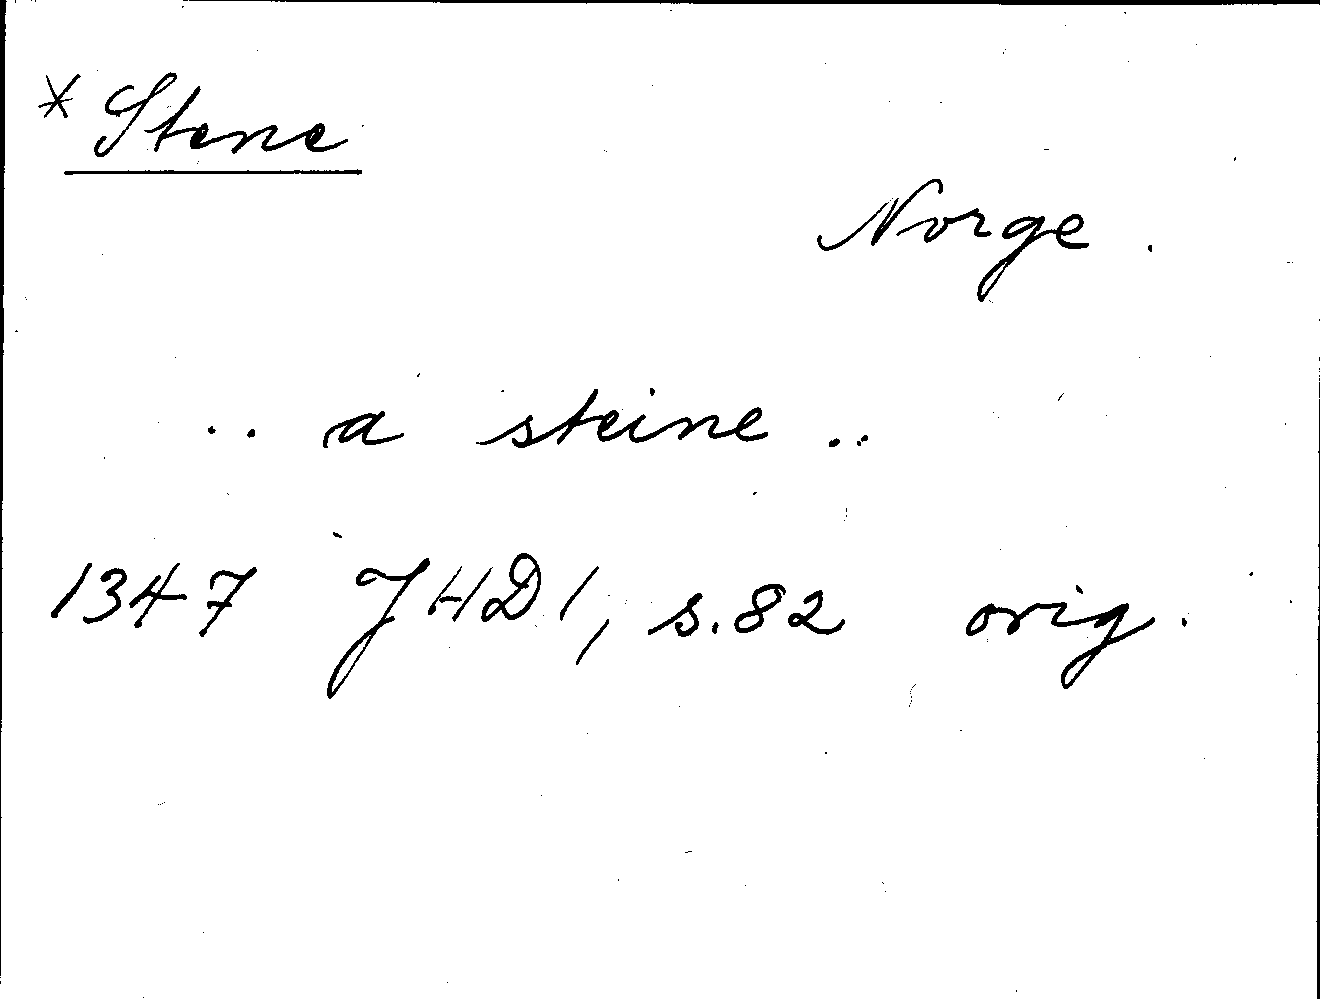 *Stene
Norge.
.. a steine ..
1347 JHD 1, s. 82 orig.